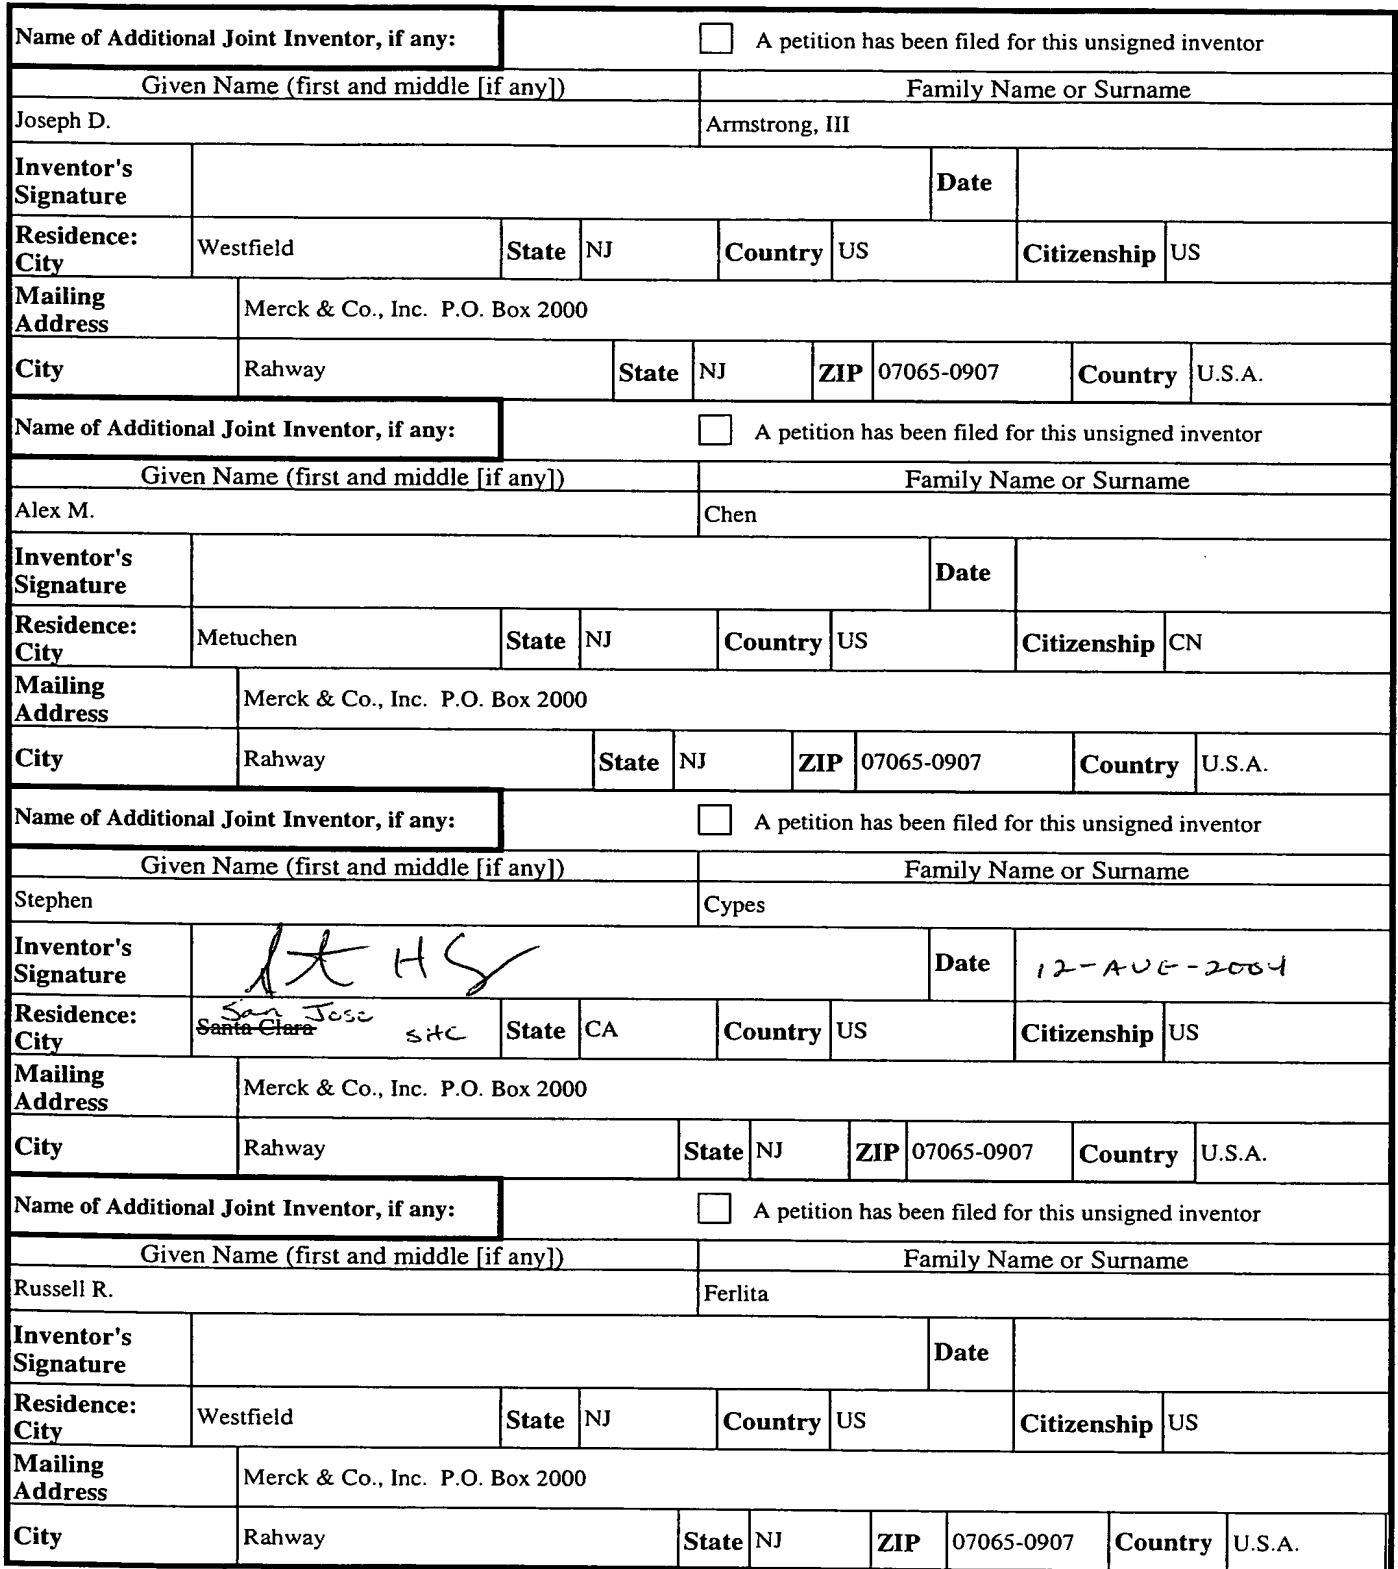 Name of Additional Joint Inventor, if any: A petition has been filed for this unsigned inventor
Given Name (first and middle [if any]) Family Name or Surname
Joseph D. Armstrong, III
Inventor's Signature Date
Residence: City Westfield State NJ Country US Citizenship US
Mailing Address Merck & Co., Inc. P.O. Box 2000
City Rahway State NJ ZIP 07065-0907 Country U.S.A.
Name of Additional Joint Inventor, if any: A petition has been filed for this unsigned inventor
Given Name (first and middle [if any]) Family Name or Surname
Alex M. Chen
Inventor's Signature Date
Residence: City Metuchen State NJ Country US Citizenship CN
Mailing Address Merck & Co., Inc. P.O. Box 2000
City Rahway State NJ ZIP 07065-0907 Country U.S.A.
Name of Additional Joint Inventor, if any: A petition has been filed for this unsigned inventor
Given Name (first and middle [if any]) Family Name or Surname
Stephen Cypes
Inventor's Signature Date 12-AUG-2004
Residence: City San Jose Santa Clara SHC State CA Country US Citizenship US
Mailing Address Merck & Co., Inc. P.O. Box 2000
City Rahway State NJ ZIP 07065-0907 Country U.S.A.
Name of Additional Joint Inventor, if any: A petition has been filed for this unsigned inventor
Given Name (first and middle [if any]) Family Name or Surname
Russell R. Ferlita
Inventor's Signature Date
Residence: City Westfield State NJ Country US Citizenship US
Mailing Address Merck & Co., Inc. P.O. Box 2000
City Rahway State NJ ZIP 07065-0907 Country U.S.A.